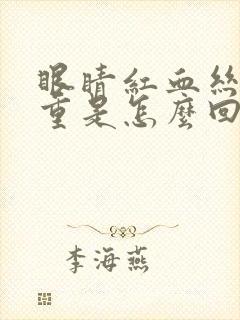 眼睛紅血絲
重是怎麼回
李海燕